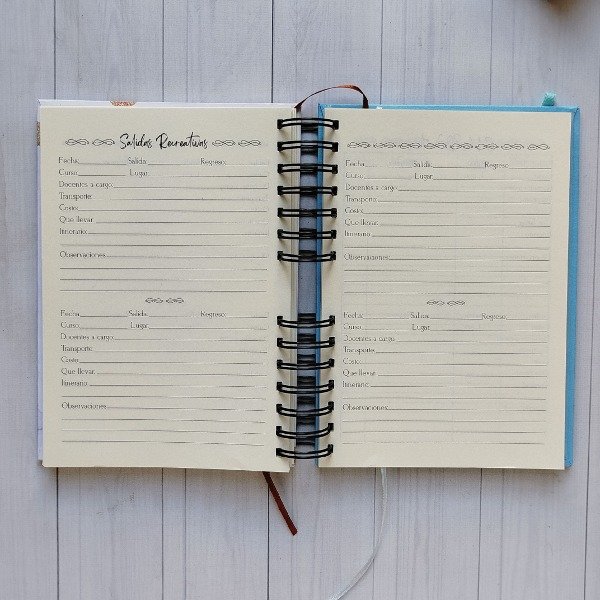 Salidas Recreativas
Fecha: Salida: Regreso:
Curso: Lugar:
Docentes a cargo:
Transporte:
Costo:
Que llevar:
Itinerario:
Observaciones:
Fecha: Salida: Regreso:
Curso: Lugar:
Docentes a cargo:
Transporte:
Costo:
Que llevar:
Itinerario:
Observaciones:
Fecha: Salida: Regreso:
Curso: Lugar:
Docentes a cargo:
Transporte:
Costo:
Que llevar:
Itinerario:
Observaciones:
Fecha: Salida: Regreso:
Curso: Lugar:
Docentes a cargo:
Transporte:
Costo:
Que llevar:
Itinerario:
Observaciones: